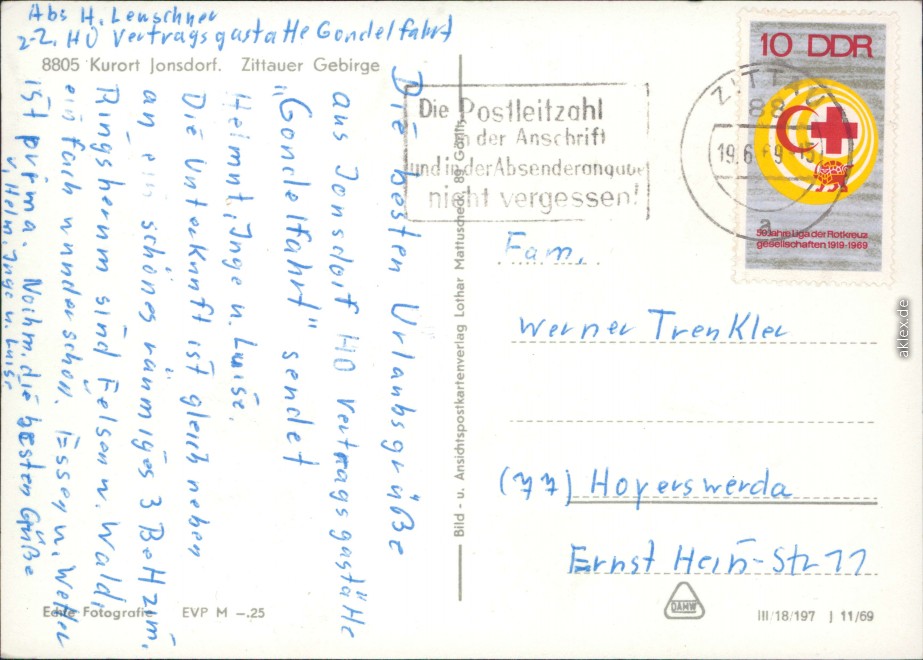 Abs H. Leuschner
z.Z. HO Vertragsgastatte Gondelfahrt
8805 Kurort Jonsdorf. Zittauer Gebirge
Die besten Urlaubsgrüße
aus Jonsdorf HO Vertragsgastätte
"Gondelfahrt" sendet
Helmut, Inge u. Luise.
Die Unterkunft ist gleich neben
an ein schönes räumiges 3 Bettzim.
Rings herum sind Felsen u. Wald,
einfach wunderschön. Essen u. Wetter
ist prima. Nochm. die besten Grüße
v. Helm. Inge u. Luise
Echte Fotografie EVP M –.25
Bild - u. Ansichtspostkartenverlag Lothar Mattuscheck, 89 Görlitz
Die Postleitzahl
in der Anschrift
und in der Absenderangabe
nicht vergessen!
ZITTAU
88
19.6.69-15
a
10 DDR
50 Jahre Liga der Rotkreuz
gesellschaften 1919-1969
Fam.
Werner Trenkler
(77) Hoyerswerda
Ernst Hein-Str 11
DAMW
III/18/197 J 11/69
aklex.de